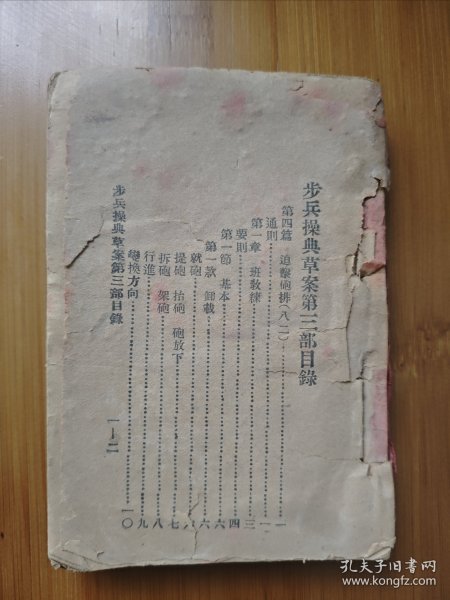 步兵操典草案第三部目錄
第四篇 迫擊砲排(八二)………一
通則………一
第一章 班教練………三
要則………四
第一節 基本………六
第一款 卸載………六
就砲………六
提砲 抬砲 砲放下………七
拆砲 架砲………八
行進………九
變換方向………一〇
步兵操典草案第三部目錄
孔夫子旧书网
www.kongfz.com